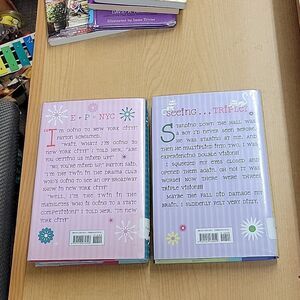 Illustrated by
E * P * NYC
"I'M GOING TO NEW YORK CITY!"
PAYTON SCREAMED.
"WAIT, WHAT? I'M GOING TO
NEW YORK CITY!" I TOLD HER. "ARE
YOU GETTING US MIXED UP?"
"NO, YOU'RE GETTING US MIXED UP!
I'M THE TWIN IN THE DRAMA CLUB
WHO'S GOING TO SEE AN OFF-BROADWAY
SHOW IN NEW YORK CITY!"
"WELL, I'M THE TWIN IN THE
MATHLETES WHO IS GOING TO A STATE
COMPETITION!" I TOLD HER. "IN
NEW YORK CITY!"
Seeing . . . TRIPLE?
STANDING DOWN THE HALL WAS
A BOY I'D NEVER SEEN BEFORE.
HE WAS STARING AT ME. AND
THEN HE MULTIPLIED INTO TWO. I WAS
EXPERIENCING DOUBLE VISION!
I SQUEEZED MY EYES CLOSED AND
OPENED THEM AGAIN. OH NO! IT WAS
WORSE! NOW THERE WERE THREE.
TRIPLE VISION!!!!
MAYBE THE FALL DID DAMAGE MY
BRAIN. I SUDDENLY FELT VERY DIZZY.